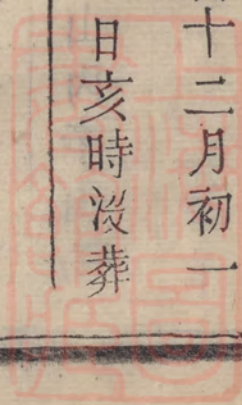 十二月初一
日亥時没葬